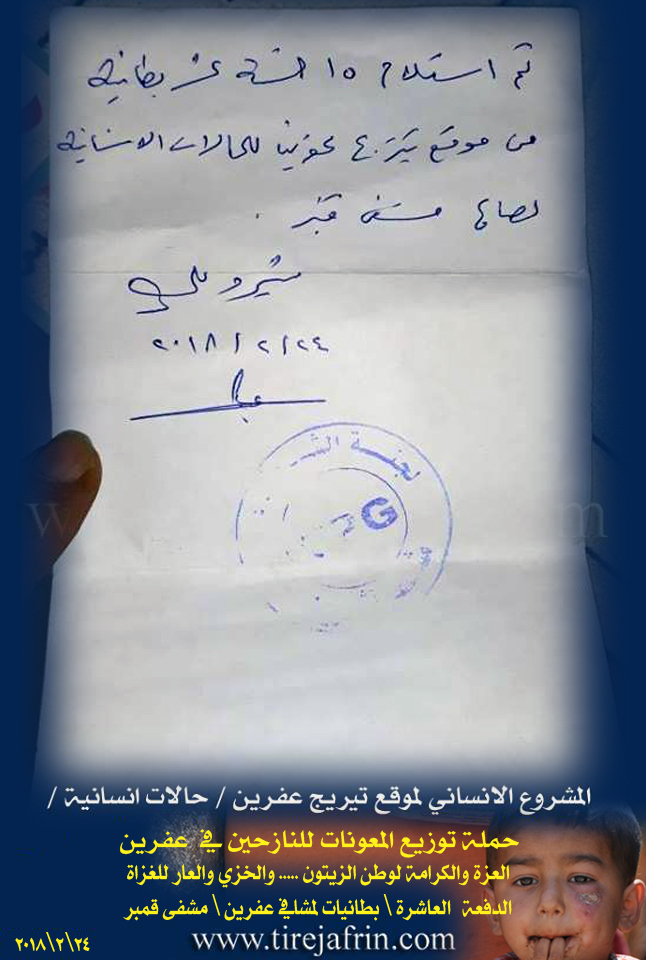 تم استلام ١٥ خمسة عشر بطانية
من موقع تيريج عفرين للحالات الانسانية
لصالح مشفى قمبر .
شيرو علي
٢٠١٨ / ٢ / ٢٤
لجنة
G
المشروع الانساني لموقع تيريج عفرين / حالات انسانية /
حملة توزيع المعونات للنازحين في عفرين
العزة والكرامة لوطن الزيتون ..... والخزي والعار للغزاة
الدفعة العاشرة \ بطانيات لمشافي عفرين \ مشفى قمبر
٢٠١٨\٢\٢٤
www.tirejafrin.com